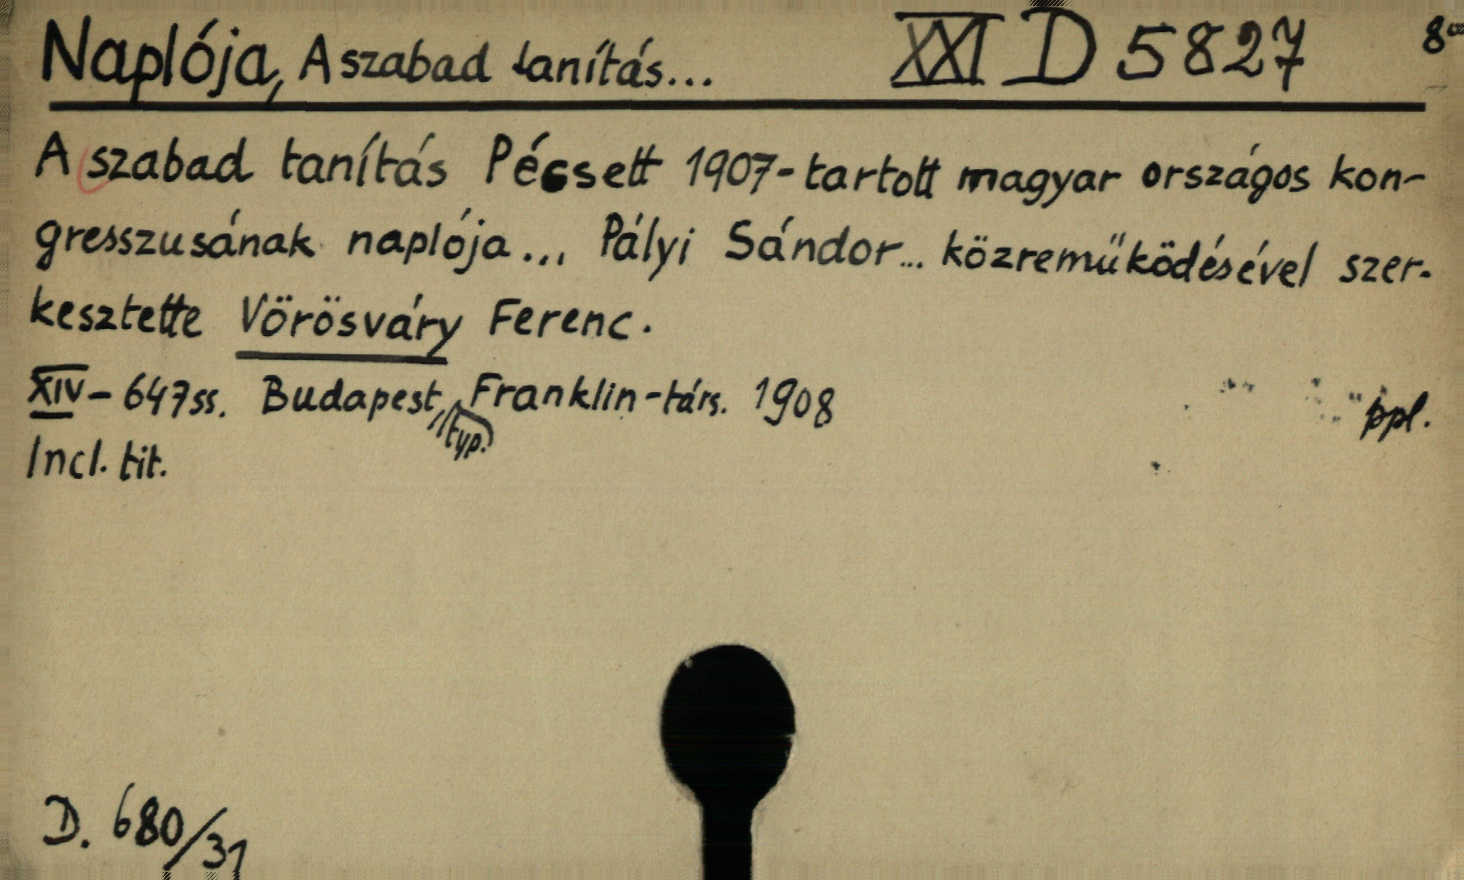 Naplója, A szabad tanítás... XXI D 5827 8°
A szabad tanítás Pécsett 1907-tartott magyar országos kon-
gresszusának naplója... Pályi Sándor... közreműködésével szer-
kesztette Vörösváry Ferenc.
XIV-647ss. Budapest, Franklin-társ. 1908 ppl.
typ.
Incl. tit.
D. 680/31